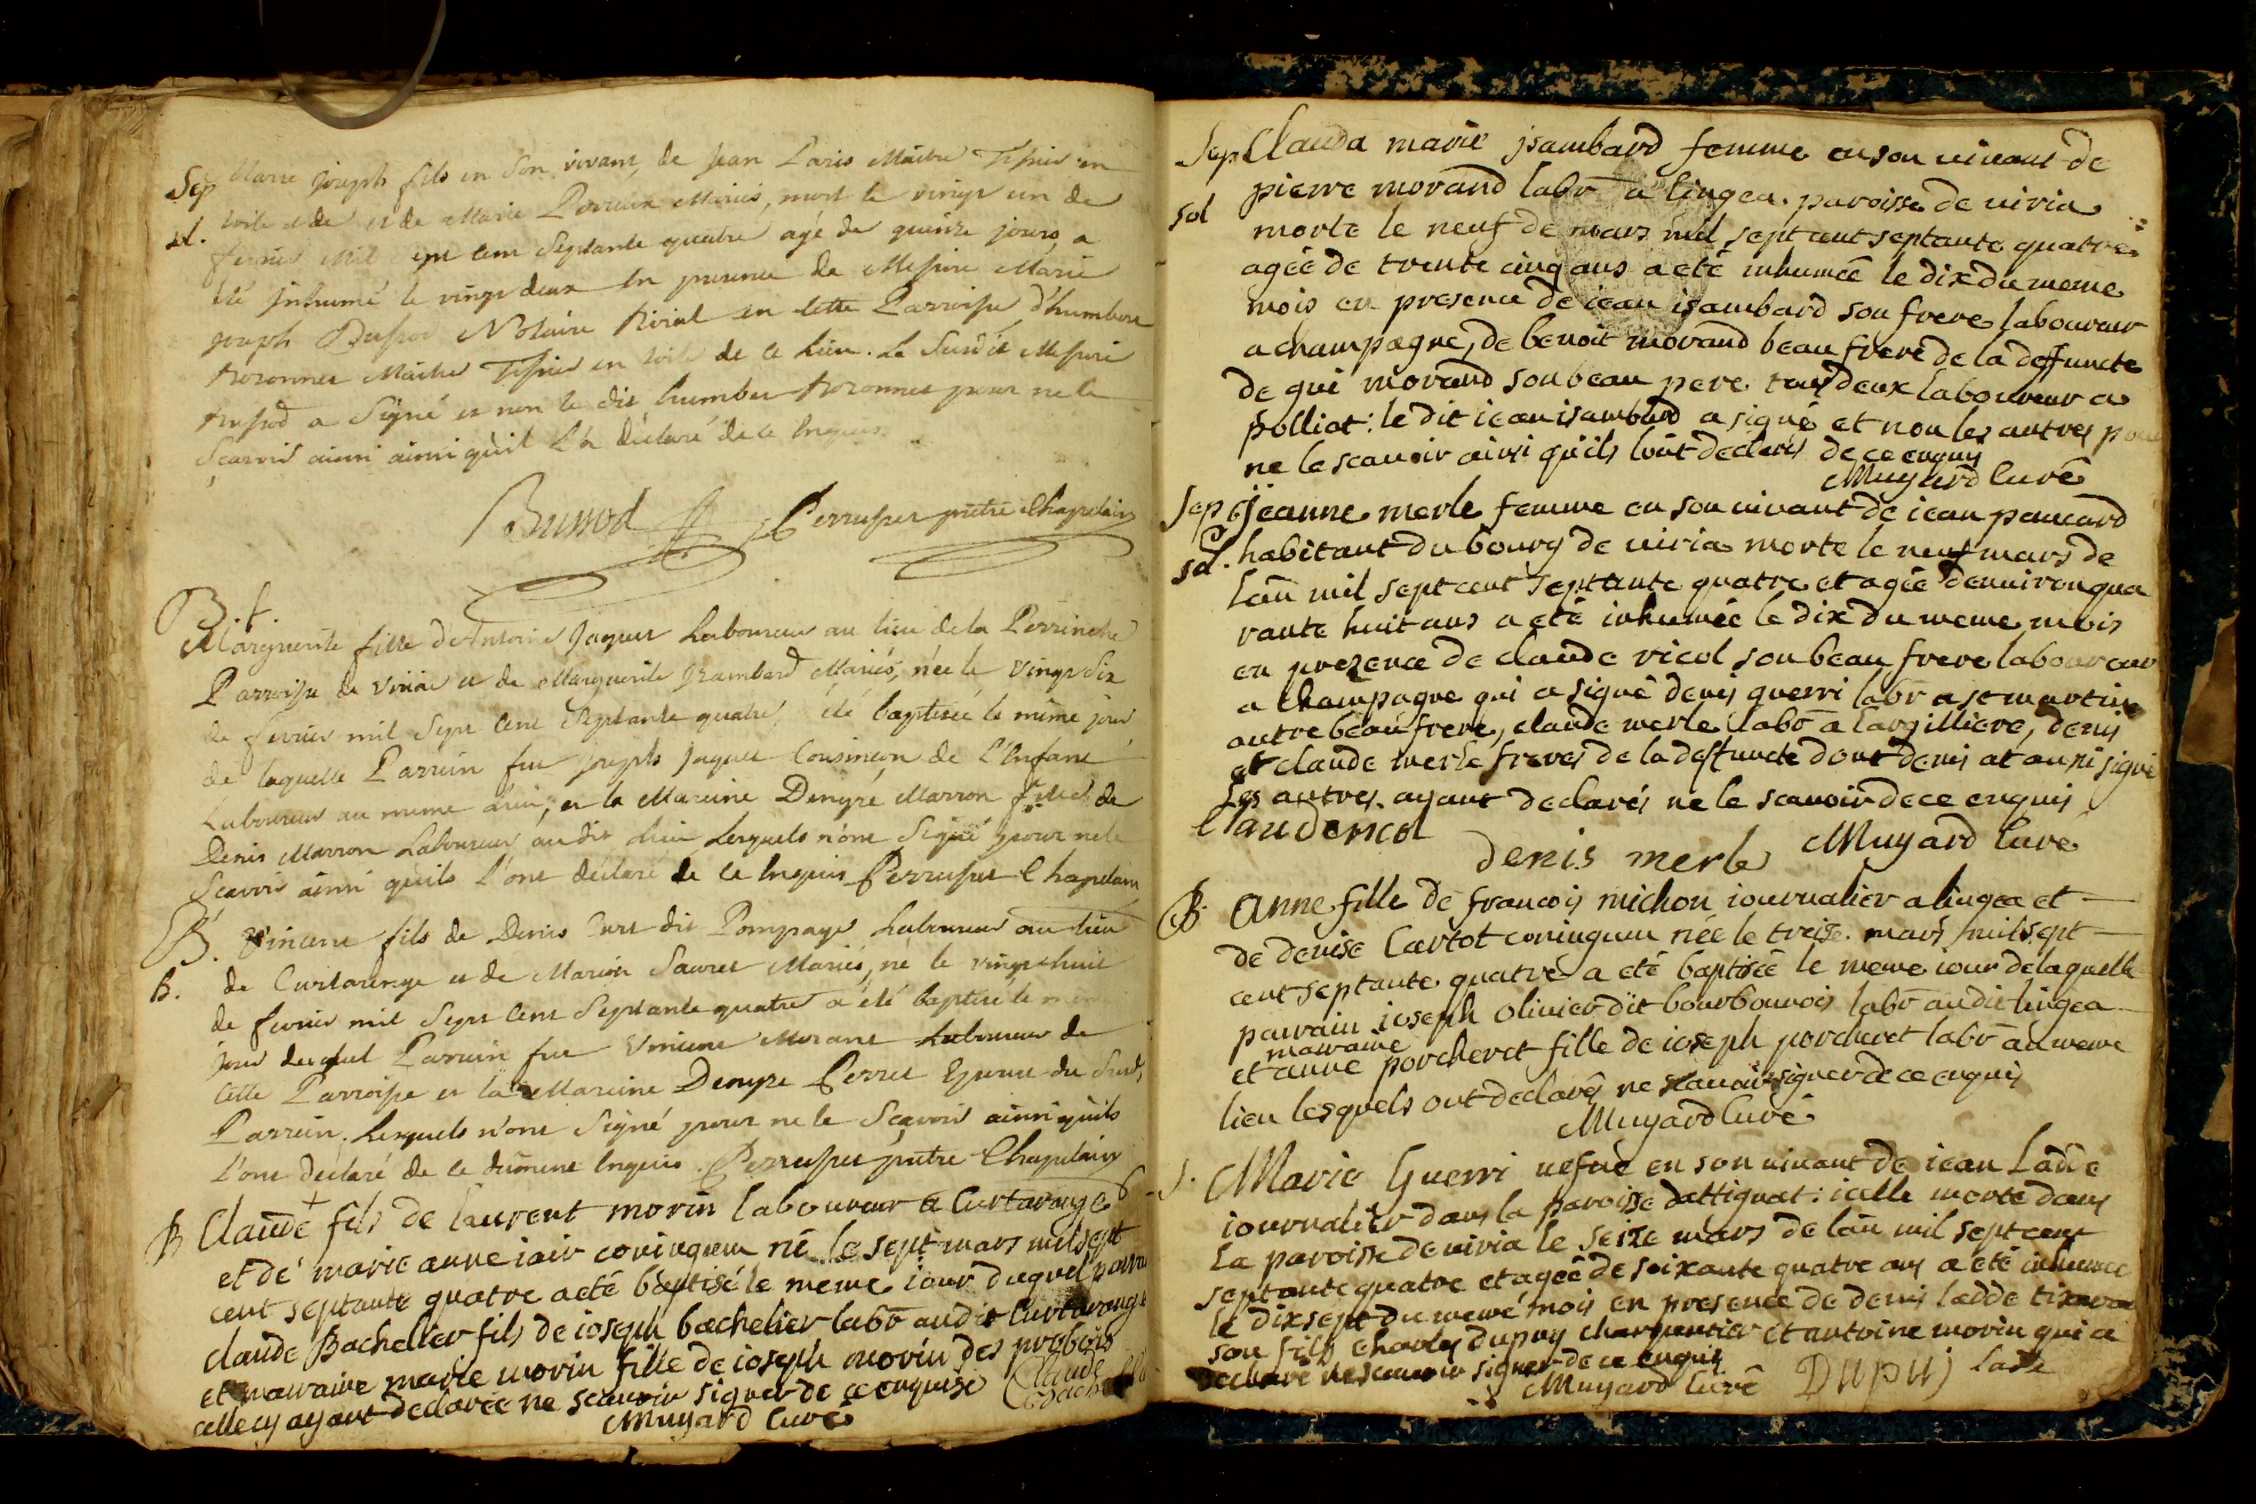 Sep Marie Joseph fils en son vivant de Jean Paris Maitre Tissier en
sol. toile et de et de Marie Perraux Mariés, mort le vingt un de
fevrier Mil sept cent septante quatre agé de quinze jours, a
été Inhumé le vingt deux en presence de Messire Marie
joseph Notaire Roïal en cette Parroisse d'humbert
Maitre Tissier en toile de ce Lieu. Le Susdit Messire
a Signé et non le dit humbert pour ne le
Scavoir ainsi ainsi qu'il L'a déclaré de ce Enquis
prêtre Chapelain
B. f
Marguerite fille d'Antoine Jaquet Laboureur au lieu de la Perrinche
Parroisse de Viria et de Marguerite Isambard Mariés, née le Vingt Six
de fevrier mil Sept Cent Septante quatre, été baptisée le même jour
de laquelle Parrein fut joseph Jaquet Cousin de L'Enfant
Laboureur au même Lieu, et la Mareine Denyze Marron fille de
Denis Marron Laboureur audit Lieu Lesquels n'ont Signé pour ne le
Scavoir ainsi quils L'ont déclaré de ce Enquis Chapelain
B. Vincent fils de Denis dit Pompaye Laboureur au lieu
B. de Curtarenge et de Marion Mariés, né le vingt huit
de fevrier mil Sept Cent Septante quatre a été baptisé le même
jour duquel Parrein fut Vincent Morant Laboureur de
Cette Parroisse et la Mareine Denyze Perret Epouse du Susd.
Parrein. Lesquels n'ont Signé pour ne le Scavoir ainsi quils
L'ont déclaré de ce dûment Enquis. prêtre Chapelain
B Claude fils de laurent morin laboureur a Curtarange
et de marie anne iair coniugum né le sept mars mil sept
cent septante quatre a eté baptisé le meme iour duquel parrain
claude Bachelier fils de ioseph bachelier labo audit Curtarange
et marraine marie morin fille de ioseph morin des
celle cy ayant declarée ne scauoir signer de ce enquise Claude
Muyard Curé
Sep Clauda marie jsambard femme en son uiuant de
sol pierre morand labo a lingea paroisse de uiria
morte le neuf de mars mil sept cent septante quatre
agée de trente cinq ans a eté inhumée le dix du meme
mois en presence de iean isambard son frere laboureur
a champagne, de benoit morand beau frere de la deffuncte
de gui morand son beau pere tous deux laboureur a
polliat: le dit iean isambard a signé et non les autres pour
ne le scauoir ainsi quils l'ont declarés de ce enquis
Muyard Curé
Sep Jeanne merle femme en son uiuant de iean pancard
sol. habitant du bourg de uiria morte le neuf mars de
lan mil sept cent septante quatre et agée denuiron qua
rante huit ans a eté inhumée le dix du meme mois
en prezence de claude ricol son beau frere laboureur
a champagne qui a signé denis guerri labo a st martin
autre beau frere, claude merle labo a largilliere, denis
et claude merle freres de la deffuncte dont denis at aussi signé
Les autres ayant declarés ne le scauoir de ce enquis
Claude ricol denis merle Muyard Curé
B. Anne fille de francois michon iournalier a lingea et
de denise Cartot coniugum née le treise mars mil sept
cent septante quatre a eté baptisée le meme iour de laquelle
parrain ioseph olivier dit bourbonois labo audit lingea
marraine
et anne porcheret fille de ioseph porcheret labo au meme
lieu lesquels ont declaré ne scauoir signer de ce enquis
Muyard Curé
S. Marie Guerri uefue en son uiuant de iean Ladde
iournalier dans la paroisse dattignat: icelle morte dans
La paroisse de uiria le seize mars de lan mil sept cent
septante quatre et agée de soixante quatre ans a eté inhumée
le dix sept du meme mois en presence de denis ladde tixerand
son fils charles dupuy charpentier et antoine morin qui a
declaré ne scauoir signer de ce enquis
Muyard Curé Dupuj ladde